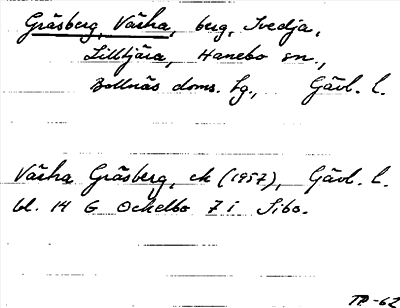 Gräsberg, Västra, berg, Svedja,
Lilltjära, Hanebo sn.,
Bollnäs doms. sg., Gävl. l.
Västra Gräsberg, ek (1957), Gävl. l.
bl. 14 G Ockelbo 7 i Sibo.
TP-62